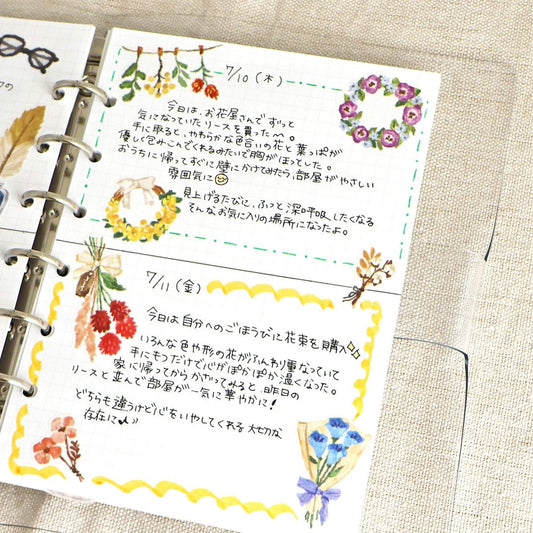 の
7/10(木)
今日は、お花屋さんでずっと
気になっていたリースを買った〜。
手に取ると、やわらかな色合いの花と葉っぱが
優しく包みこんでくれるみたいで胸がほっとした。
おうちに帰ってすぐに壁にかけてみたら、部屋がやさしい
雰囲気に
見上げるたびに、ふっと深呼吸したくなる
そんなお気に入りの場所になったよ。
7/11(金)
今日は自分へのごほうびに花束を購入
いろんな色や形の花がふんわり重なっていて
手にもつだけで心がぽかぽか温くなった。
家に帰ってからかざってみると、昨日の
リースと並んで部屋が一気に華やかに!
どちらも違うけど心をいやしてくれる大切な
存在に